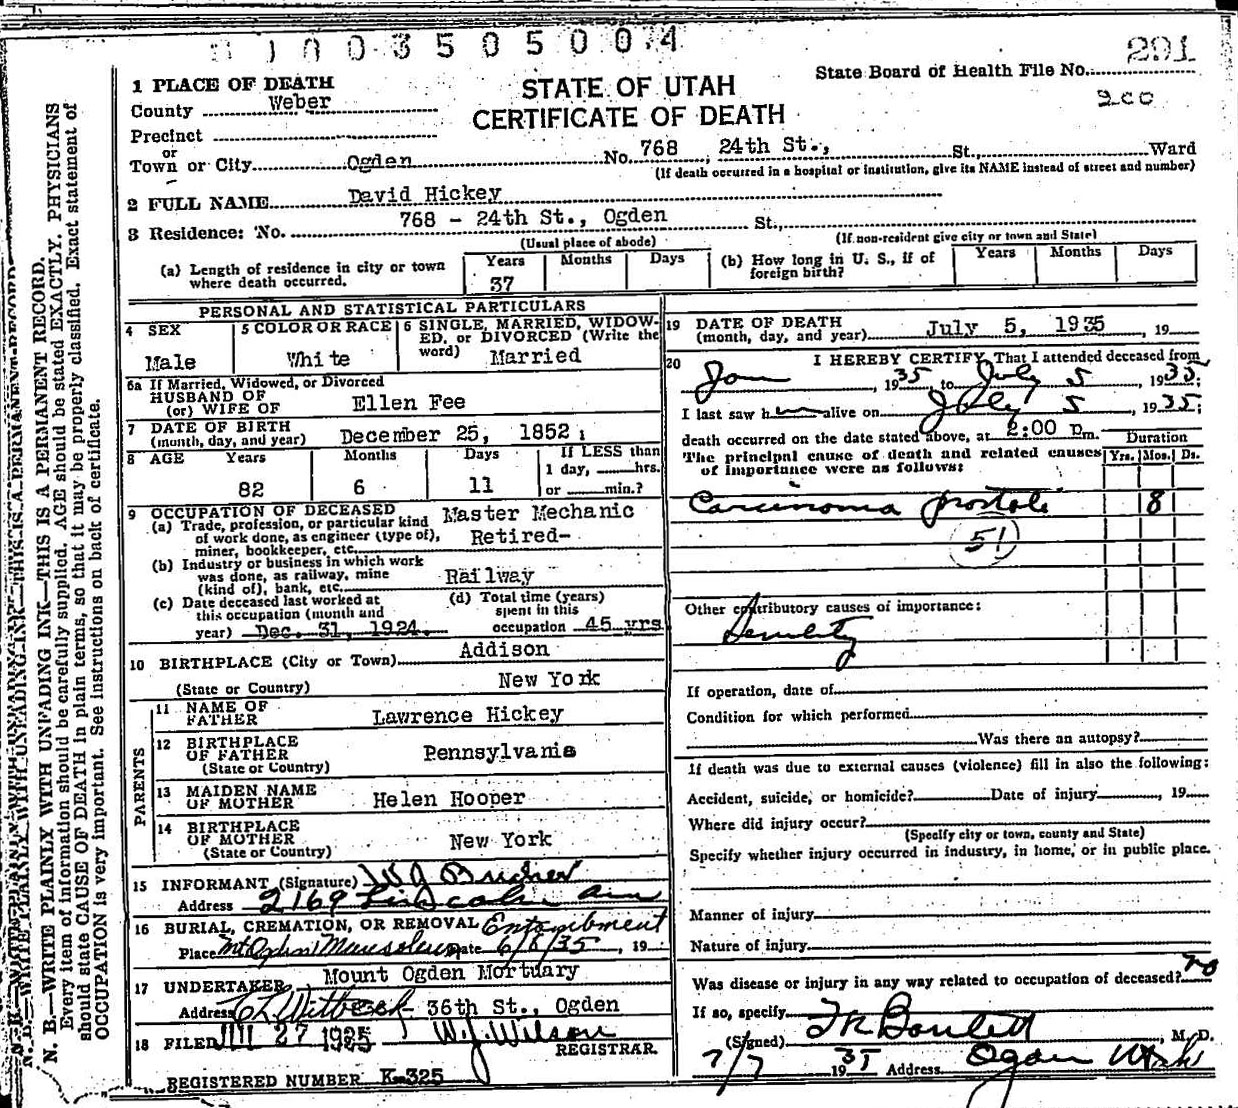 1003505004
291
State Board of Health File No.
200
STATE OF UTAH
CERTIFICATE OF DEATH
1 PLACE OF DEATH
County Weber
Precinct
or
Town or City Ogden No. 768 24th St., St., Ward
(If death occurred in a hospital or institution, give its NAME instead of street and number)
2 FULL NAME David Hickey
3 Residence: No. 768 - 24th St., Ogden St.,
(Usual place of abode) (If non-resident give city or town and State)
(a) Length of residence in city or town where death occurred. Years 37 Months Days
(b) How long in U. S., if of foreign birth? Years Months Days
PERSONAL AND STATISTICAL PARTICULARS
4 SEX Male
5 COLOR OR RACE White
6 SINGLE, MARRIED, WIDOWED, or DIVORCED (Write the word) Married
6a If Married, Widowed, or Divorced
HUSBAND OF
(or) WIFE OF Ellen Fee
7 DATE OF BIRTH
(month, day, and year) December 25, 1852
8 AGE Years 82 Months 6 Days 11 If LESS than 1 day, hrs. or min.?
9 OCCUPATION OF DECEASED
(a) Trade, profession, or particular kind of work done, as engineer (type of), miner, bookkeeper, etc. Master Mechanic Retired-
(b) Industry or business in which work was done, as railway, mine (kind of), bank, etc. Railway
(c) Date deceased last worked at this occupation (month and year) Dec. 31, 1924.
(d) Total time (years) spent in this occupation 45 yrs
10 BIRTHPLACE (City or Town) Addison
(State or Country) New York
PARENTS
11 NAME OF FATHER Lawrence Hickey
12 BIRTHPLACE OF FATHER
(State or Country) Pennsylvania
13 MAIDEN NAME OF MOTHER Helen Hooper
14 BIRTHPLACE OF MOTHER
(State or Country) New York
15 INFORMANT (Signature) W J
Address 2169
16 BURIAL, CREMATION, OR REMOVAL Entombment
Place Mt Ogden Mausoleum Date 6/8/35, 19
17 UNDERTAKER Mount Ogden Mortuary
Address 36th St., Ogden
18 FILED 27 1935 W. J. Wilson
REGISTRAR.
REGISTERED NUMBER K-325
19 DATE OF DEATH
(month, day, and year) July 5, 1935, 19
20 I HEREBY CERTIFY, That I attended deceased from
Jan, 1935, to July 5, 1935;
I last saw him alive on July 5, 1935;
death occurred on the date stated above, at 2:00 p.m.
Duration
Yrs. Mos. Ds.
The principal cause of death and related causes of importance were as follows:
Carcinoma prostate 8
51
Other contributory causes of importance:
Senility
If operation, date of
Condition for which performed
Was there an autopsy?
If death was due to external causes (violence) fill in also the following:
Accident, suicide, or homicide? Date of injury, 19
Where did injury occur?
(Specify city or town, county and State)
Specify whether injury occurred in industry, in home, or in public place.
Manner of injury
Nature of injury
Was disease or injury in any way related to occupation of deceased? no
If so, specify
(Signed) M. D.
7/7 1935 Address Ogden Utah
N. B.—WRITE PLAINLY WITH UNFADING INK—THIS IS A PERMANENT RECORD.
Every item of information should be carefully supplied. AGE should be stated EXACTLY. PHYSICIANS
should state CAUSE OF DEATH in plain terms, so that it may be properly classified. Exact statement of
OCCUPATION is very important. See instructions on back of certificate.